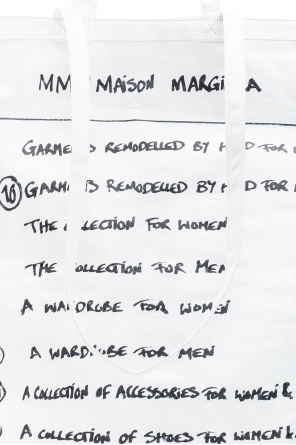 MM MAISON MARGI A
GARME S REMODELLED BY H D FOR
10 GARM TS REMODELLED BY H D FOR
THE C LLECTION FOR WOMEN
THE COLLECTION FOR MEN
A WARDROBE FOR WOMEN
A WARDROBE FOR MEN
A COLLECTION OF ACCESSORIES FOR WOMEN &
A COLLECTION OF SHOES FOR WOMEN &